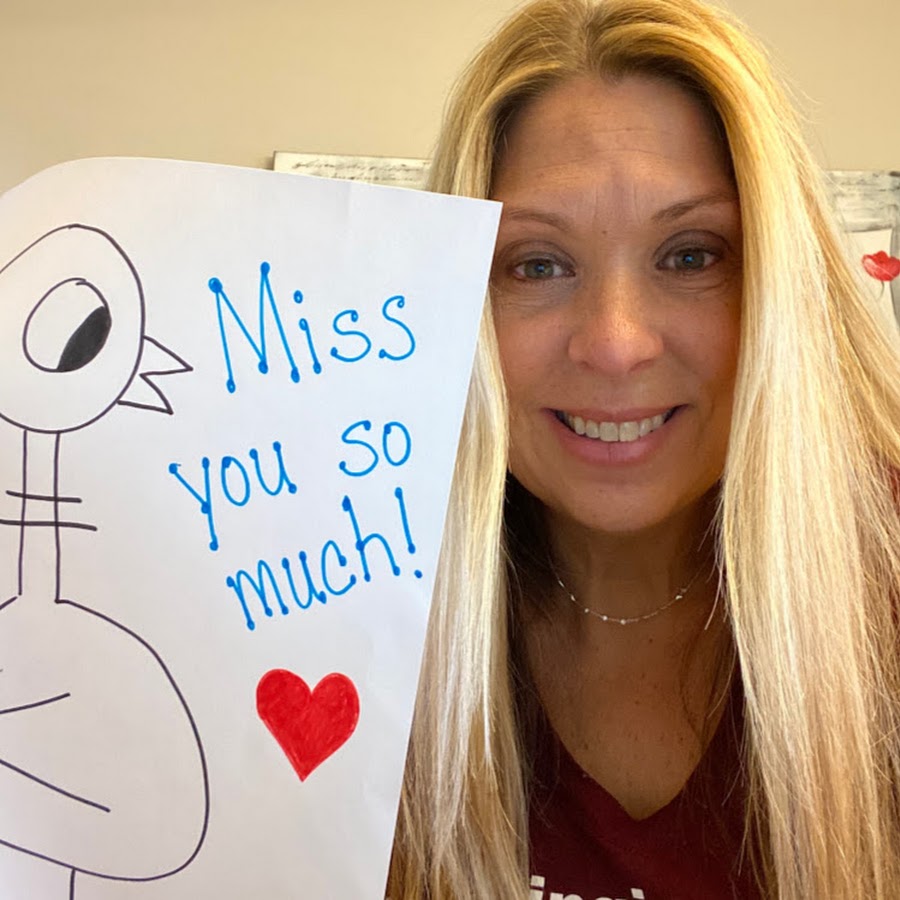 Miss
you so
much!